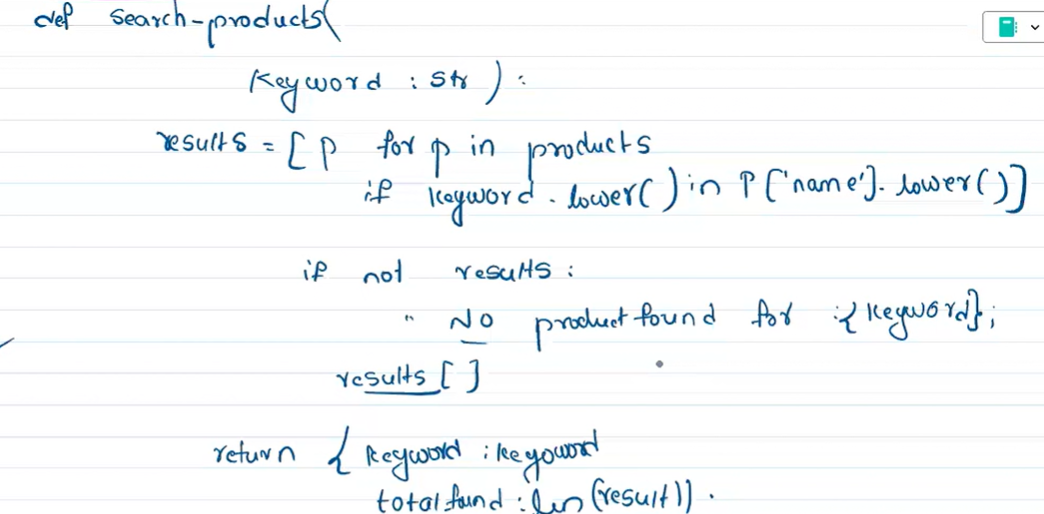 def search-products(
Keyword : str ) :
results = [ p for p in products
if keyword . lower( ) in P ['name'] . lower( ) ]
if not results :
" No product found for : { keyword } ;
results [ ]
return { keyword : keyword
total found : len (result)) .